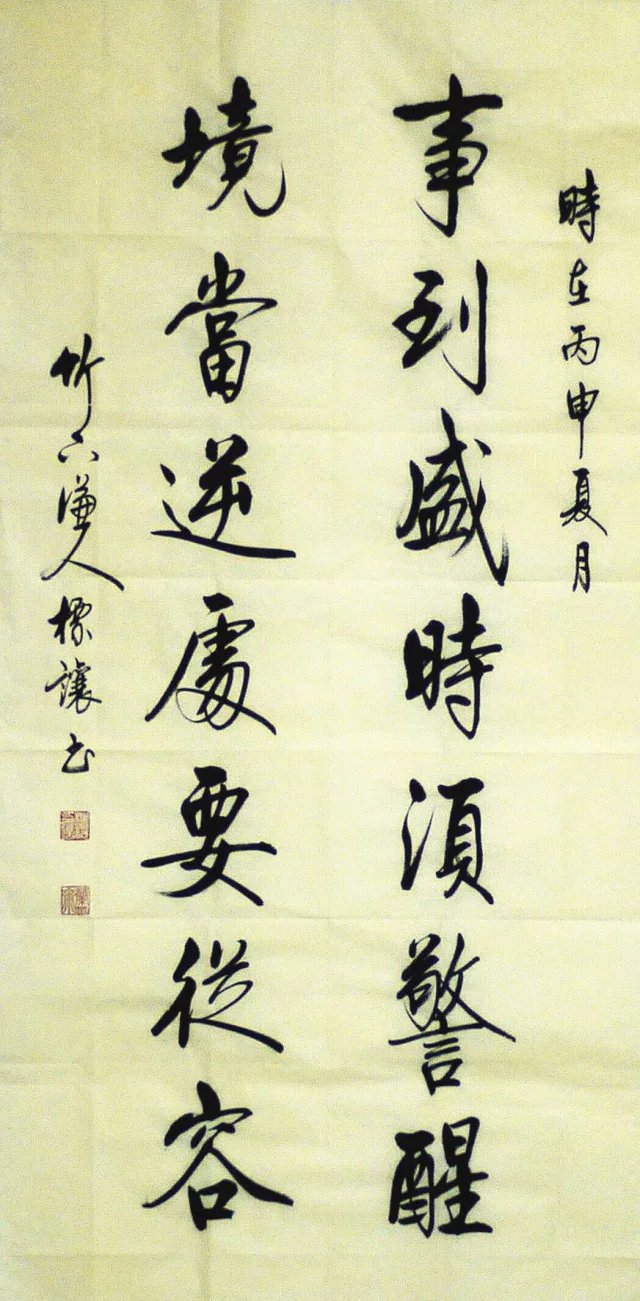 時在丙申夏月
事到盛時須警醒
境當逆處要從容
竹六谦人標讓书